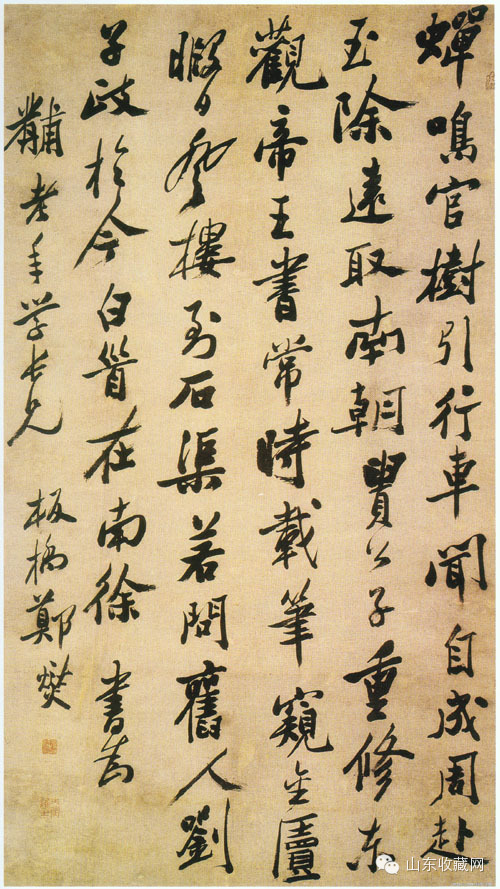 蟬鳴官樹引行車聞自成周赴
玉除遠取南朝貴公子重修東
觀帝王書常時載筆窺金匱
暇日登樓到石渠若問舊人劉
子政於今白首在南徐 書為
黼老年學長兄 板橋鄭燮
山东收藏网